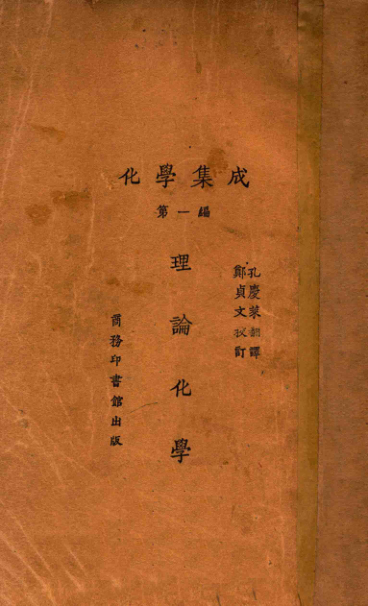 化學集成
第一編
孔慶萊翻譯
鄭貞文校訂
理論化學
商務印書館出版